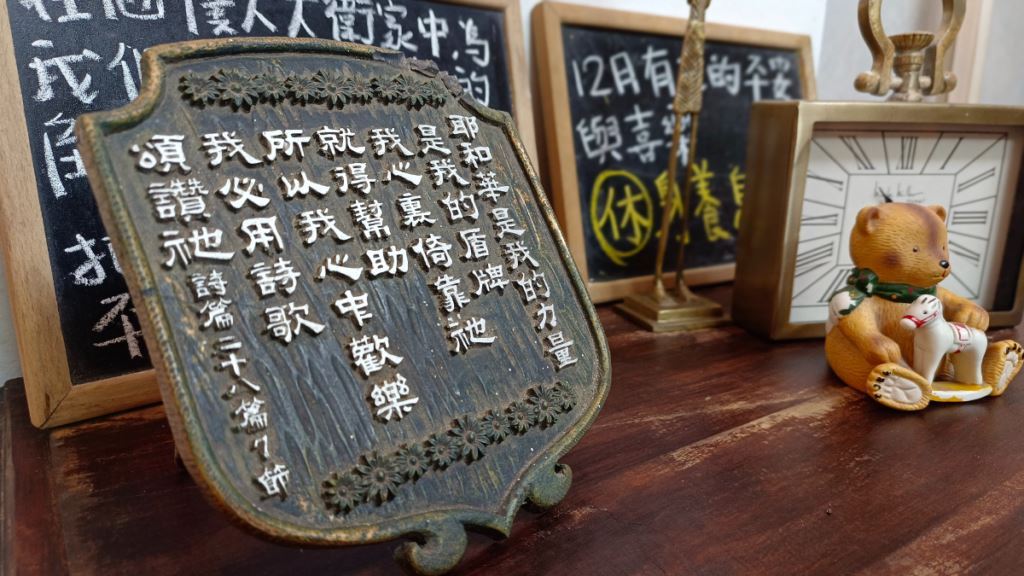 僕人大衛家中為
我們
12月有 的平安
與喜樂
休 養
耶和華是我的力量
是我的盾牌
我心裏倚靠祂
就得幫助
所以我心中歡樂
我必用詩歌
頌讚祂 詩篇二十八篇7節